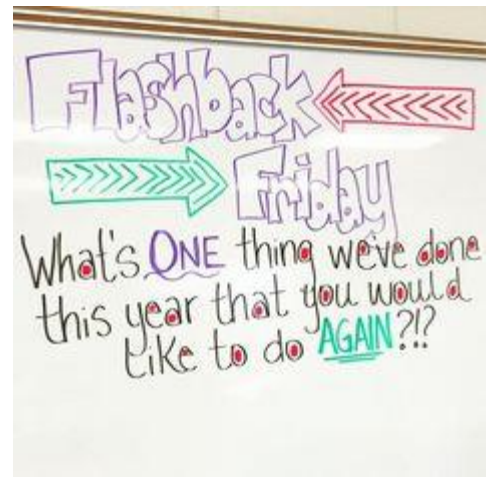 Flashback
Friday
What's ONE thing we've done
this year that you would
like to do AGAIN?!?